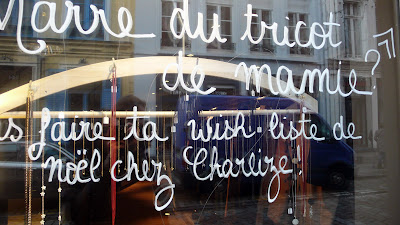 Marre du tricot
de mamie?
faire ta wish liste de
noël chez Charlize: